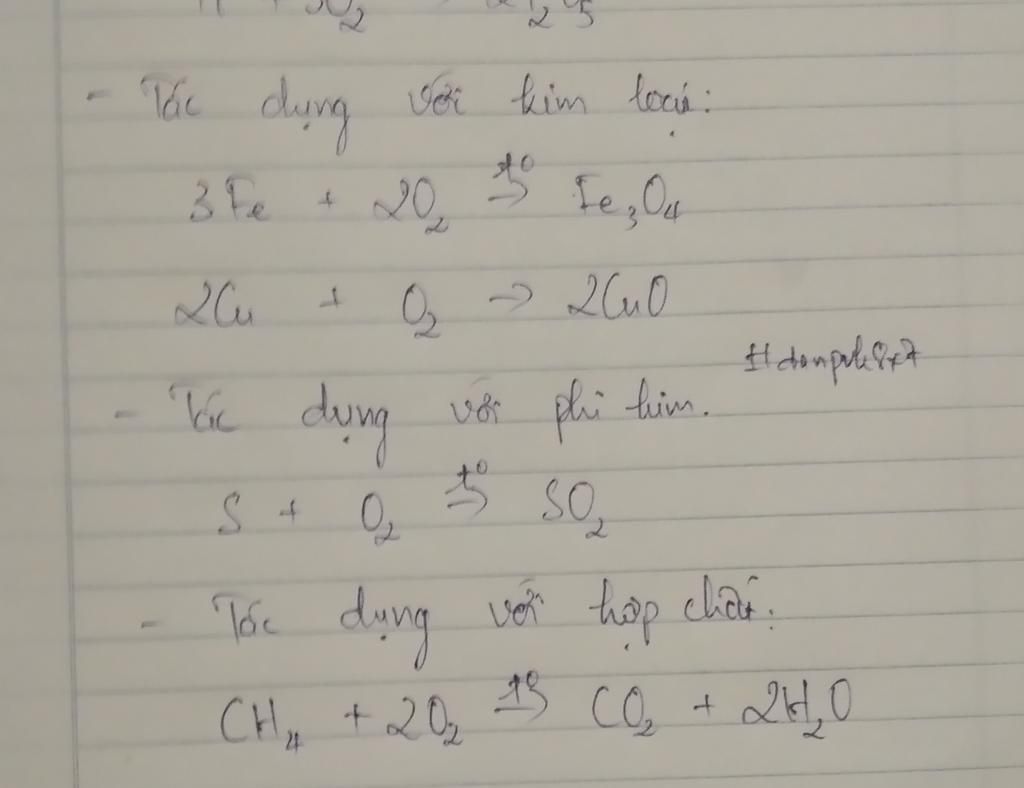 - Tác dụng với kim loại:
3Fe + 2O₂ →t° Fe₃O₄
2Cu + O₂ → 2CuO
- Tác dụng với phi kim.
S + O₂ →t° SO₂
- Tác dụng với hợp chất:
CH₄ + 2O₂ →t° CO₂ + 2H₂O